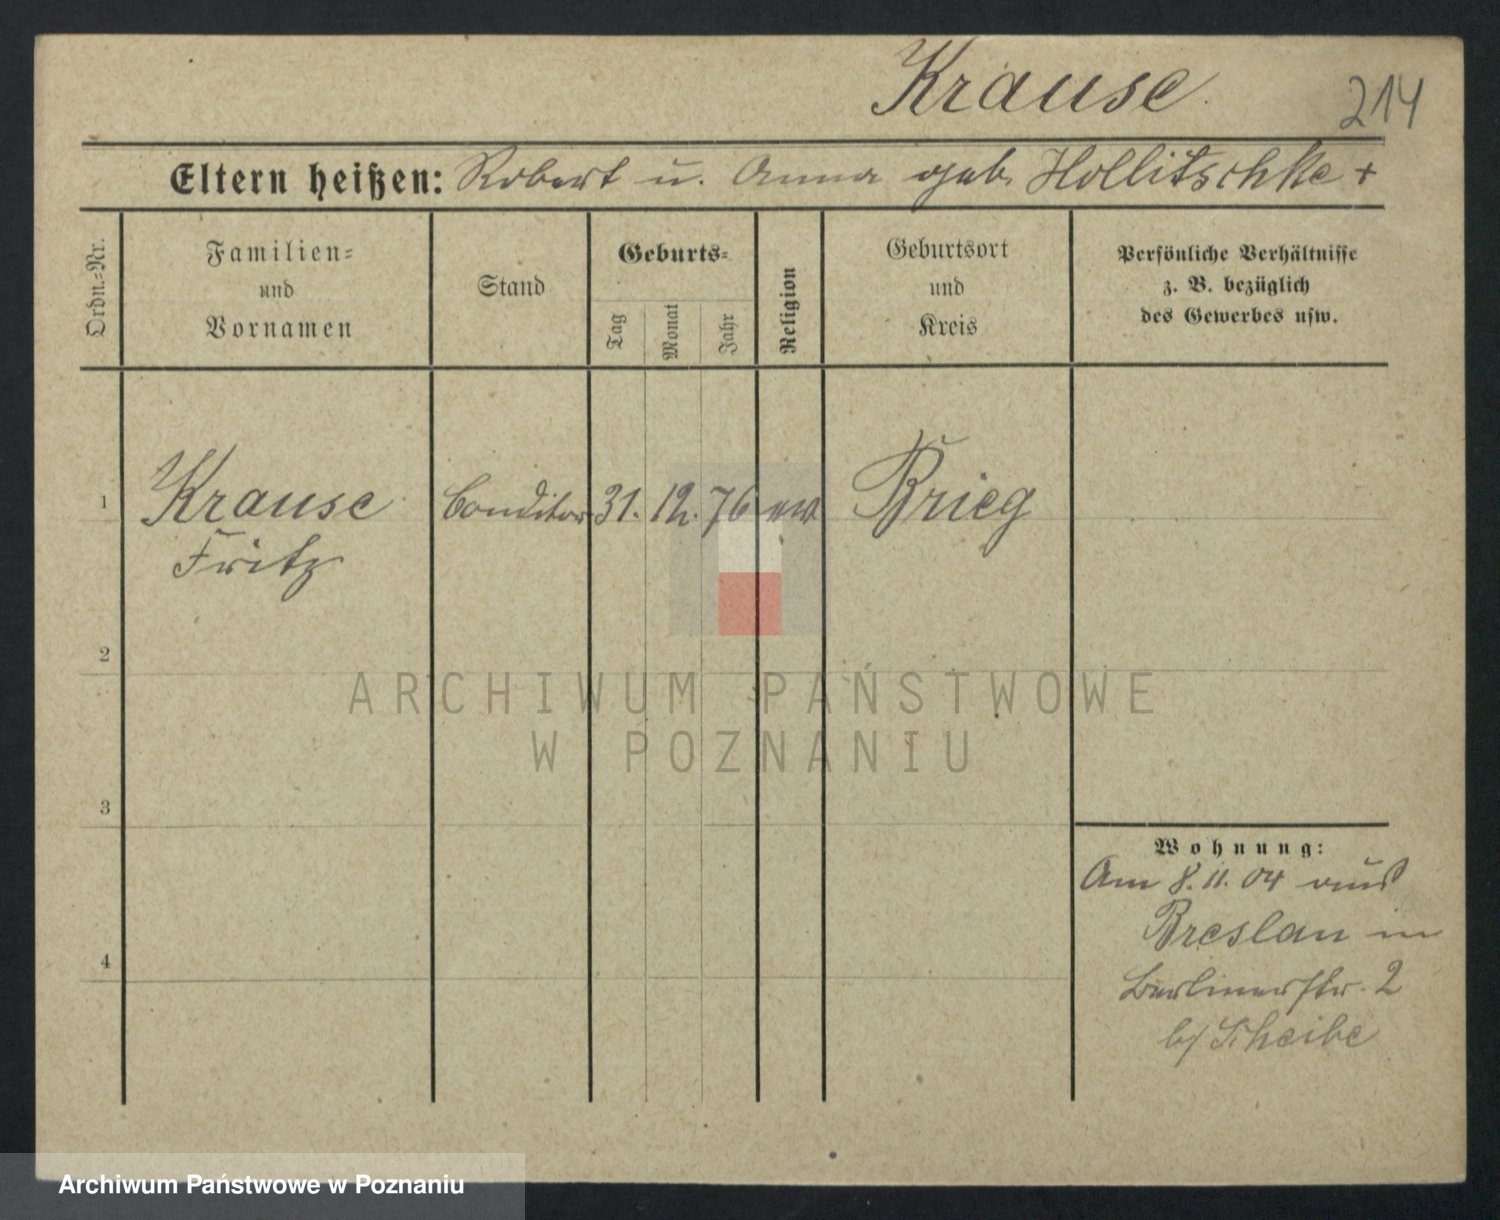 Krause.
214
Eltern heißen: Robert u. Anna geb. Hollitschke +
Ordn.-Nr.
Familien-
und
Vornamen
Stand
Geburts-
Tag
Monat
Jahr
Religion
Geburtsort
und
Kreis
Persönliche Verhältnisse
z. B. bezüglich
des Gewerbes usw.
1
Krause
Fritz
Conditor
31. 12. 76
ew
Brieg
2
3
4
Wohnung:
Am 8. 11. 04 aus
Breslau in
Berlinerstr. 2
b/ Scheibe
ARCHIWUM PAŃSTWOWE
W POZNANIU
Archiwum Państwowe w Poznaniu